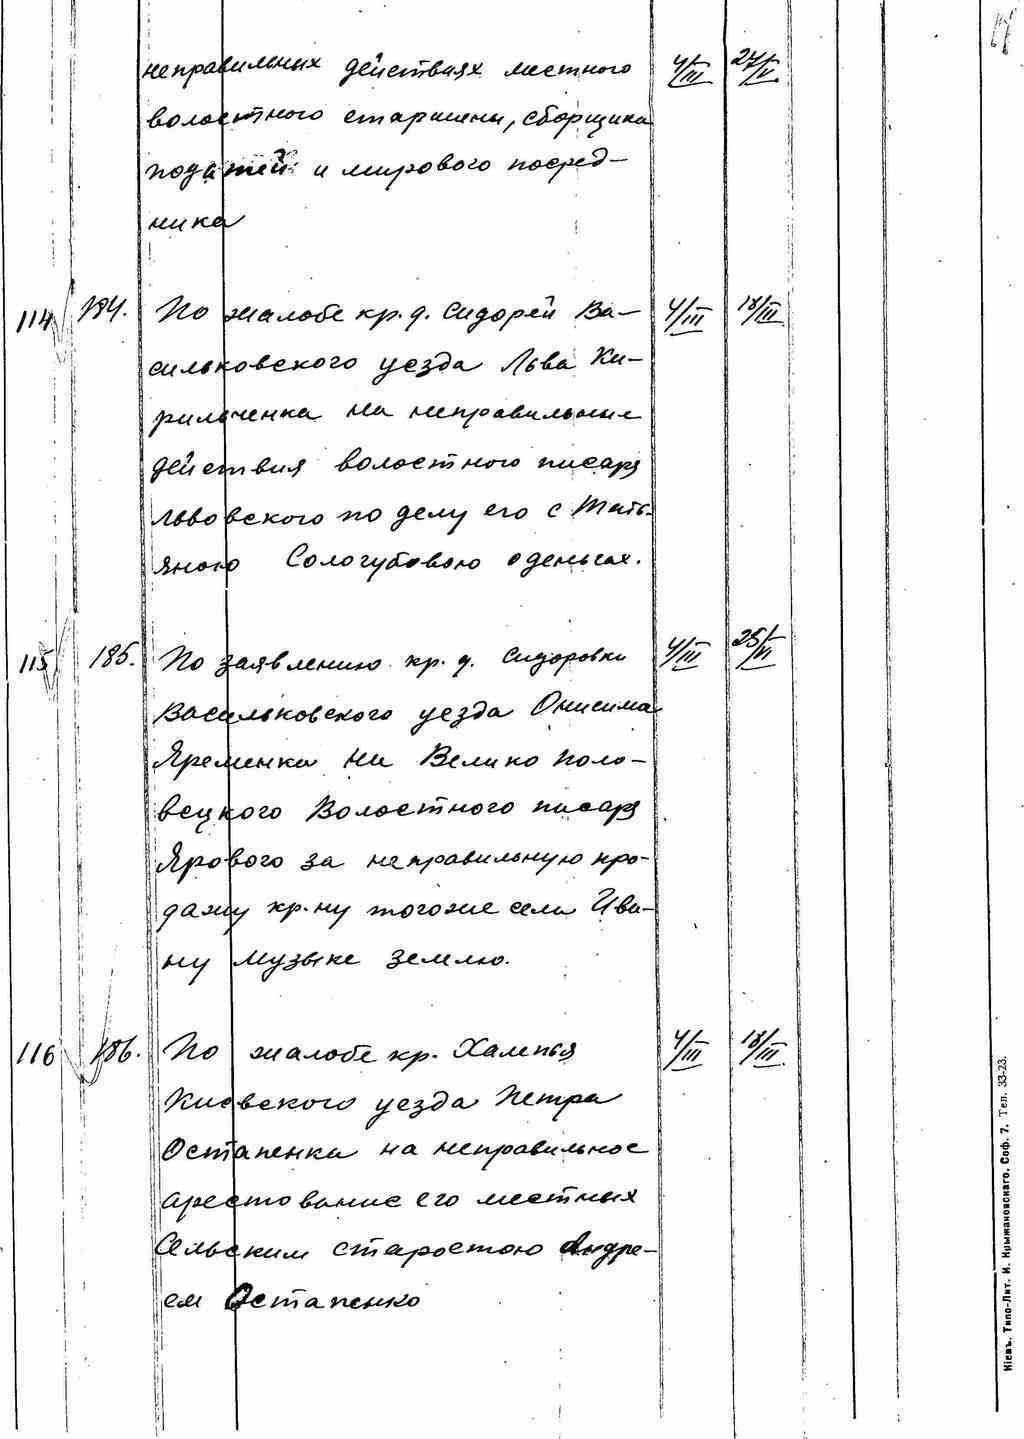 неправильных действиях местного 4/III 27/V
волостного старшины, сборщика
податей и мирового посред-
ника
114 184. По жалобе кр. д. Сидорей Ва- 4/III 18/III
сильковского уезда Льва Ки-
рильченка на неправильные
действия волостного писаря
Львовского по делу его с Тать-
яною Сологубовою о деньгах.
115 185. По заявлению кр. д. Сидоровки 4/III 25/VI
Васильковского уезда Онисима
Яременка на Велико Поло-
вецкого Волостного писаря
Ярового за неправильную про-
дажу кр-ну тогоже села Ива-
ну Музыке землю.
116 186. По жалобе кр. Халепья 4/III 18/III
Киевского уезда Петра
Остапенка на неправильное
арестование его местным
Сельским старостою Андре-
ем Остапенко
Кіевъ. Типо-Лит. И. Крыжановскаго. Соф. 7. Тел. 33-23.